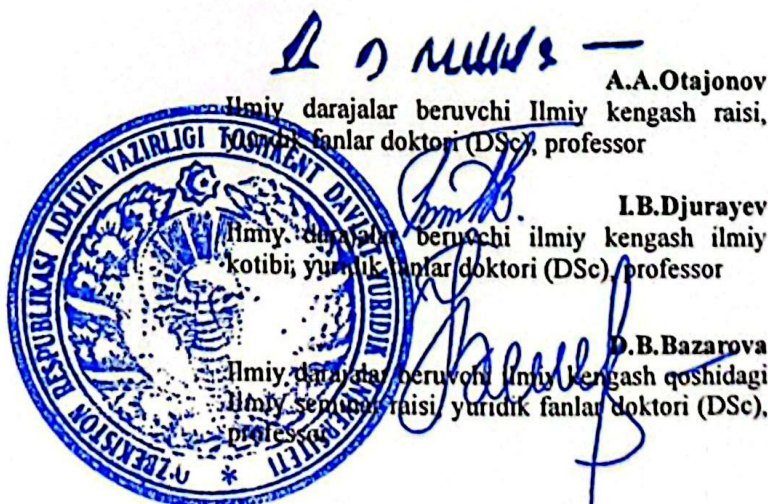 A.A.Otajonov
Ilmiy darajalar beruvchi Ilmiy kengash raisi,
yuridik fanlar doktori (DSc), professor
I.B.Djurayev
Ilmiy darajalar beruvchi ilmiy kengash ilmiy
kotibi, yuridik fanlar doktori (DSc), professor
D.B.Bazarova
Ilmiy darajalar beruvchi Ilmiy kengash qoshidagi
Ilmiy seminar raisi, yuridik fanlar doktori (DSc),
professor
O'ZBEKISTON RESPUBLIKASI ADLIYA VAZIRLIGI TOSHKENT DAVLAT YURIDIK UNIVERSITETI *